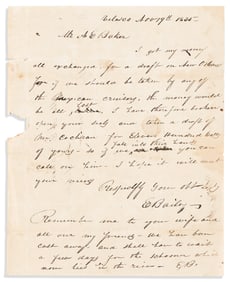 Nov 19th 1835
Mr. A C Baker
I got my money
all exchanged for a draft on New Orleans
for if we should be taken by any of
the Mexican cruisers, the money would
be all lost I have therefore broken
your and taken a draft of
Mr. Cochran for Eleven Hundred dolls
of yours so if we fall into their hands you can
call on him I hope it will meet
your views
Respectfy Your Obt
E Bailey
Remember me to your wife and
all our friends We have been
cast away and shall have to wait
a few days for the schooner which
now lies in the river E.B.